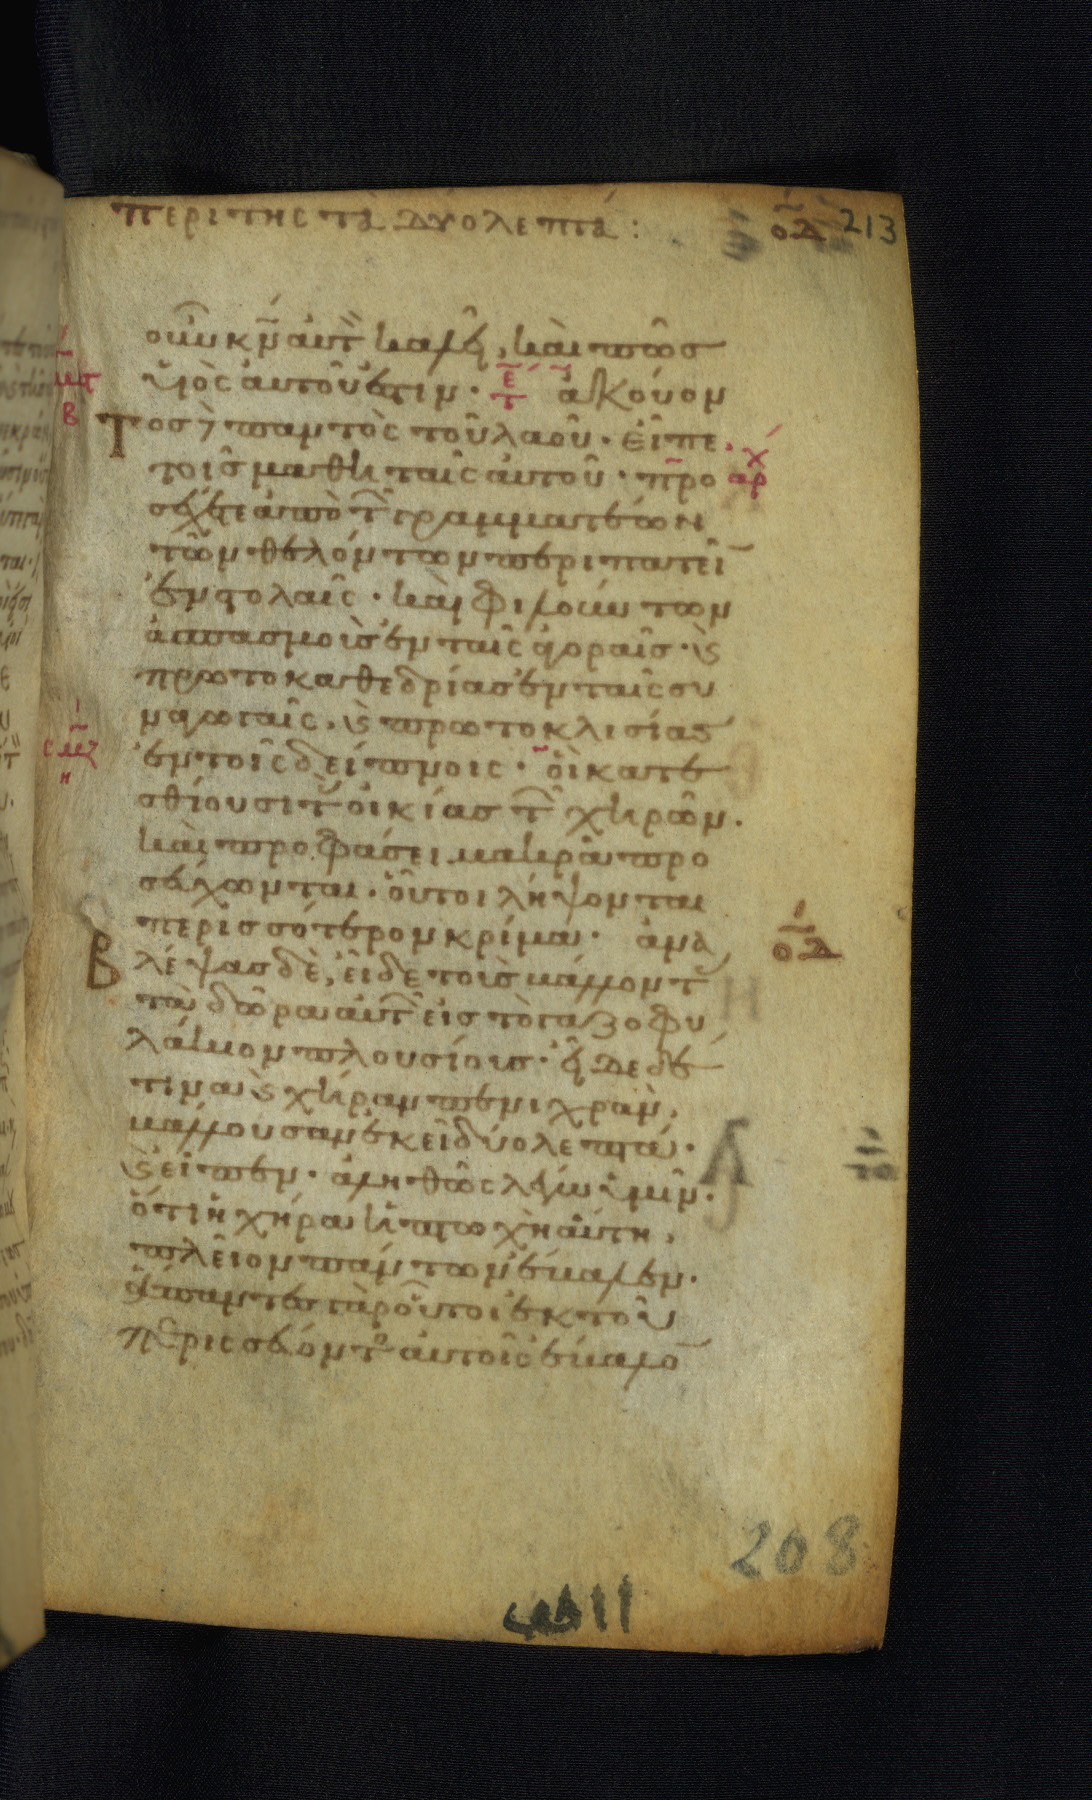 περι της τὰ δυο λεπτά :
οδ 213
οὖν κν̄ αὐτ καλεῖ, καὶ πῶσ
υἱὸς αὐτοῦ ἐστιν · ἀκούον
τος δὲ παντὸς τοῦ λαοῦ · εἶπε
τοῖς μαθηταῖς αὐτοῦ · προ
σέχετε ἀπὸ τῶν γραμματέων
τῶν θελόντων περιπατεῖ
ἐν στολαῖς · καὶ φιλούντων
ἀσπασμοὺς ἐν ταῖς ἀγοραῖσ · καὶ
πρωτοκαθεδρίασ ἐν ταῖς συ
ναγωγαῖς · καὶ πρωτοκλισίας
ἐν τοῖς δείπνοις · οἳ κατε
σθίουσι τὰς οἰκίας τῶν χηρῶν.
καὶ προφάσει μακρὰ προ
σεύχωνται · οὗτοι λήψονται
περισσότερον κρίμα · ἀνα
βλέψας δὲ, εἶδε τοὺς βάλλοντας
τὰ δῶρα αὐτῶν εἰς τὸ γαζοφυ
λάκιον πλουσίους · εἶδε δέ
τινα καὶ χήραν πενιχρὰν,
βάλλουσαν ἐκεῖ δύο λεπτά ·
καὶ εἶπεν · ἀληθῶς λέγω ὑμῖν ·
ὅτι ἡ χήρα ἡ πτωχὴ αὕτη,
πλεῖον πάντων ἔβαλεν.
ἅπαντες γὰρ οὗτοι ἐκ τοῦ
περισσεύοντος αὐτοῖς ἔβαλο
οδ
208